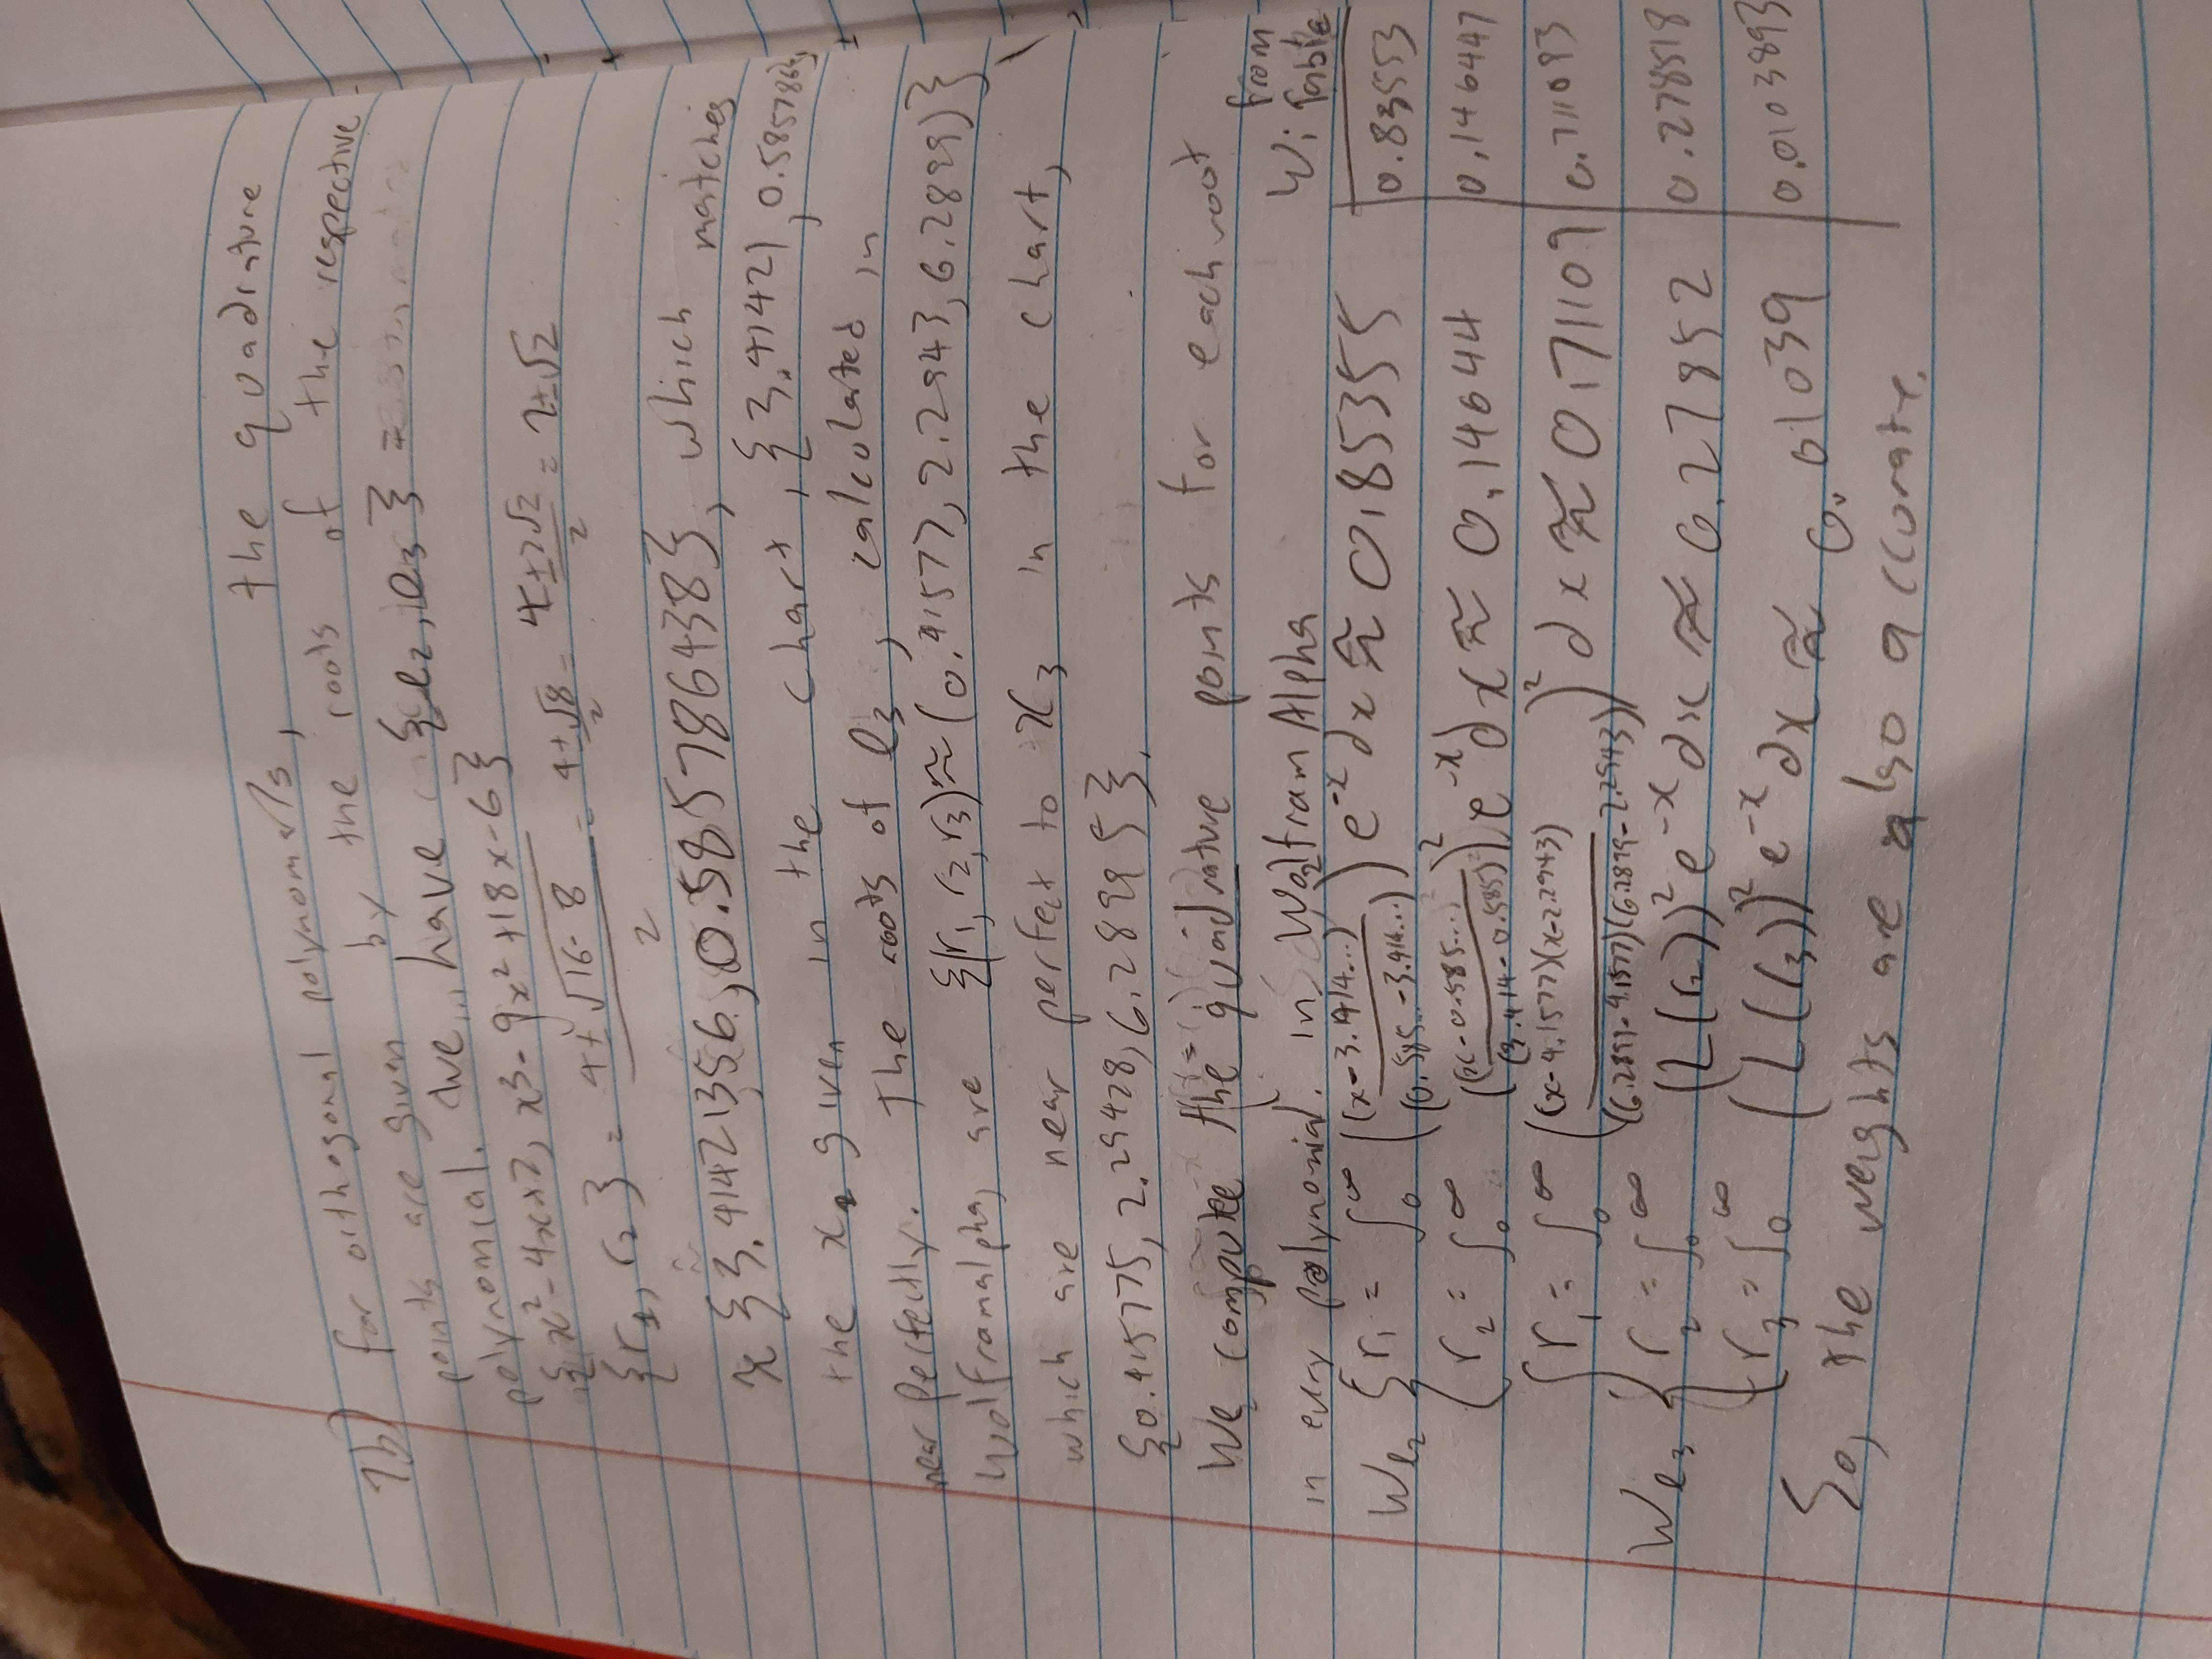 7b) for orthogonal polynomials, the quadrature
points are given by the roots of the respective
polynomial. We have {ℓ₂, ℓ₃} =
{x² - 4x + 2, x³ - 9x² + 18x - 6}
{r₁, r₂} = (4 ± √(16 - 8))/2 = (4 ± √8)/2 = (4 ± 2√2)/2 = 2 ± √2
≈ {3.41421356, 0.5857864438}, which matches
the x₂ given in the chart, {3.41421, 0.585786},
near perfectly. The roots of ℓ₃, calculated in
Wolframalpha, are {(r₁, r₂, r₃) ≈ (0.41577, 2.2943, 6.2899)}
which are near perfect to x₃ in the chart,
{0.415775, 2.29428, 6.28995}.
We compute the quadrature points for each root
in every polynomial. in WolframAlpha
Wi from Table
Wℓ₂ { r₁ = ∫₀^∞ ((x - 3.414...)/(0.585... - 3.414...))² e^(-x) dx ≈ 0.85355 | 0.83553
r₂ = ∫₀^∞ ((x - 0.585...)/(3.414 - 0.585))² e^(-x) dx ≈ 0.14644 | 0.146447
Wℓ₃ { r₁ = ∫₀^∞ ((x - 4.1577)(x - 2.2943)/(6.2899 - 4.1577)(6.2899 - 2.2943))² dx ≈ 0.71109 | 0.711093
r₂ = ∫₀^∞ (L(r₂))² e^(-x) dx ≈ 0.27852 | 0.278518
r₃ = ∫₀^∞ (L(r₃))² e^(-x) dx ≈ 0.01039 | 0.0103893
So, the weights are also accurate.